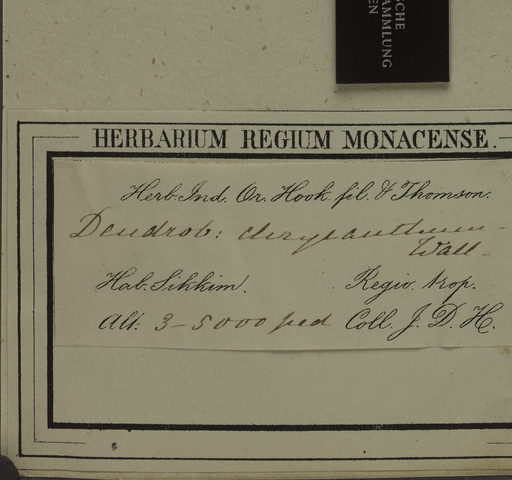 SCHE
AMMLUNG
EN
HERBARIUM REGIUM MONACENSE.
Herb. Ind. Or. Hook. fil. & Thomson.
Dendrob: chrysanthum -
Wall -
Hab. Sikkim. Regio. trop.
Alt: 3-5000 ped Coll. J. D. H.